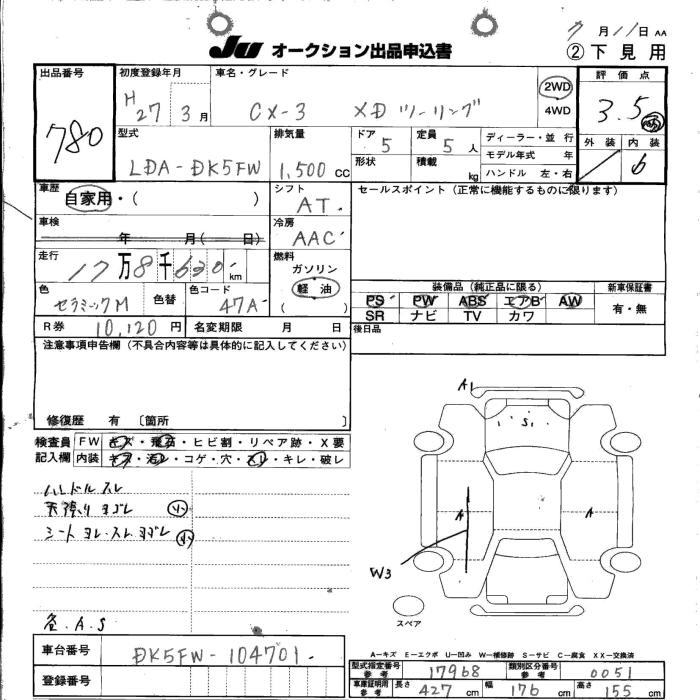 7月11日 AA
JU オークション出品申込書 ②下見用
出品番号 780
初度登録年月 H27 3月
車名・グレード CX-3 XD ツーリング
2WD
4WD
評価点 3.5
外装 内装 6
型式 LDA-DK5FW
排気量 1,500 CC
ドア 5
定員 5人
形状
積載 kg
ディーラー・並行
モデル年式 年
ハンドル 左・右
車歴 自家用・( )
シフト AT.
セールスポイント(正常に機能するものに限ります)
車検 年 月( 日)
冷房 AAC
走行 17万8千620 km
燃料
ガソリン
軽油
( )
色 セラミックM
色替
色コード 47A
装備品(純正品に限る)
新車保証書
PS PW ABS エアB AW
SR ナビ TV カワ
有・無
R券 10,120円
名変期限 月 日
後日品
注意事項申告欄(不具合内容等は具体的に記入してください)
修復歴 有 〔箇所 〕
検査員
記入欄
FW キズ・飛石・ヒビ割・リペア跡・X要
内装 キズ・汚レ・コゲ・穴・スレ・キレ・破レ
ハンドルスレ
天張りヨゴレ 小
シートヨレ・スレ ヨゴレ 小
A・S
A1
S1
A
A
W3
スペア
A-キズ E-エクボ U-凹み W-補修跡 S-サビ C-腐食 XX-交換済
車台番号 DK5FW-104701
登録番号
型式指定番号 参考 17968
類別区分番号 参考 0051
車庫証明用 参考 長さ 427 cm 幅 176 cm 高さ 155 cm